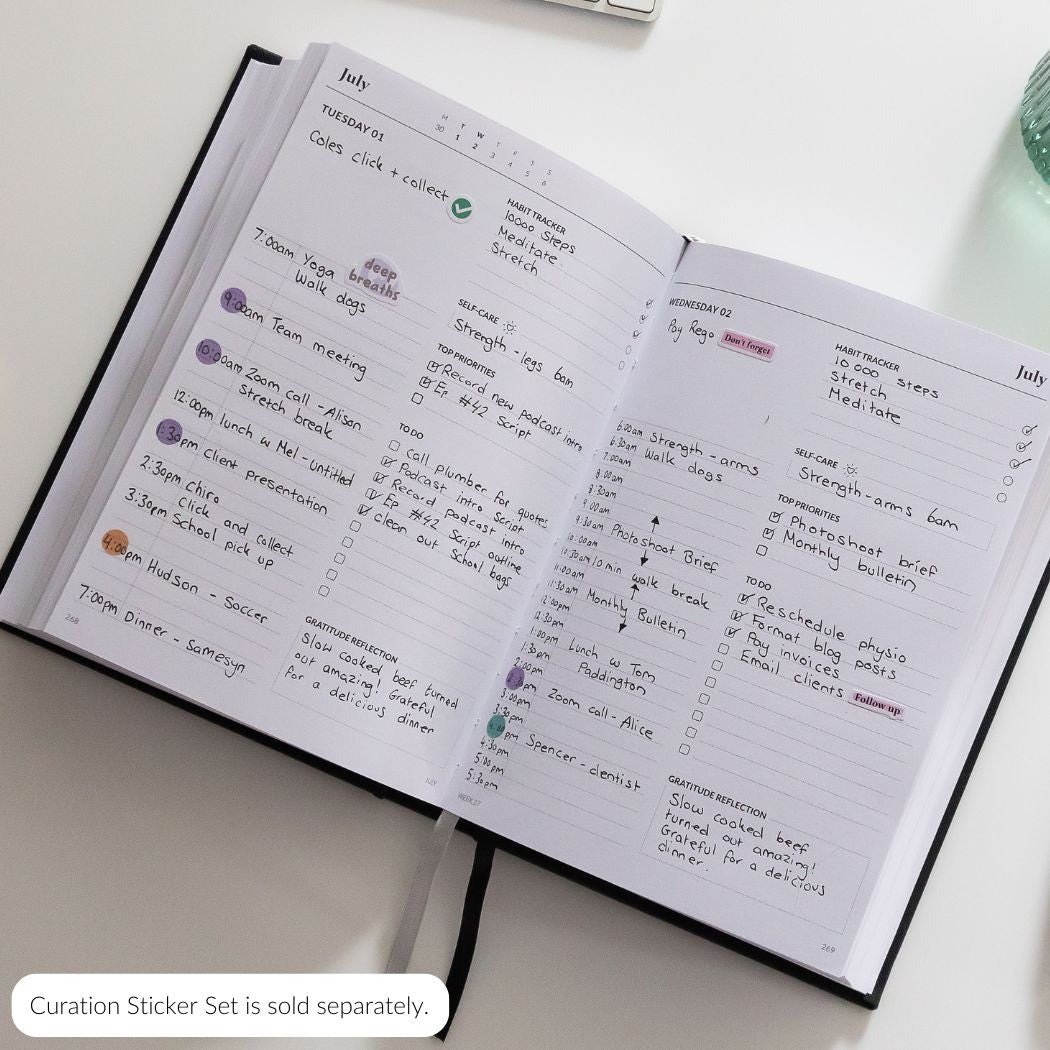 July
M T W T F S S
30 1 2 3 4 5 6
TUESDAY 01
Coles click + collect
HABIT TRACKER
10000 Steps
Meditate
Stretch
7:00am Yoga
deep
breaths
Walk dogs
9:00am Team meeting
10:00am Zoom call - Alison
Stretch break
12:00pm lunch w Mel - Untitled
1:30pm Client presentation
2:30pm chiro
Click and collect
3:30pm School pick up
4:00pm Hudson - Soccer
7:00pm Dinner - Samesyn
268
SELF-CARE
Strength - legs 6am
TOP PRIORITIES
Record new podcast intro
Ep #42 Script
TO DO
call plumber for quotes
Podcast intro Script
Record podcast intro
Ep #42 Script outline
clean out School bags
GRATITUDE REFLECTION
Slow cooked beef turned
out amazing! Grateful
for a delicious dinner
JULY
July
WEDNESDAY 02
Pay Rego
Don't forget
HABIT TRACKER
10 000 steps
Stretch
Meditate
6:00am Strength - arms
6:30am Walk dogs
7:00am
8:00am
8:30am
9:00am
9:30am Photoshoot Brief
10:00am
10:30am 10 min walk break
11:00am
11:30am Monthly Bulletin
12:00pm
12:30pm
1:00pm Lunch w Tom
1:30pm Paddington
2:00pm
pm Zoom call - Alice
3:00pm
3:30pm
4:00pm Spencer - dentist
4:30pm
5:00pm
5:30pm
WEEK 27
SELF-CARE
Strength - arms 6am
TOP PRIORITIES
Photoshoot brief
Monthly bulletin
TO DO
Reschedule physio
Format blog posts
Pay invoices
Email clients
Follow up
GRATITUDE REFLECTION
Slow cooked beef
turned out amazing!
Grateful for a delicious
dinner.
269
Curation Sticker Set is sold separately.